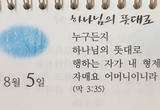 하나님의 뜻대로
누구든지
하나님의 뜻대로
행하는 자가 내 형제
자매요 어머니이니라
(막 3:35)
8월 5일